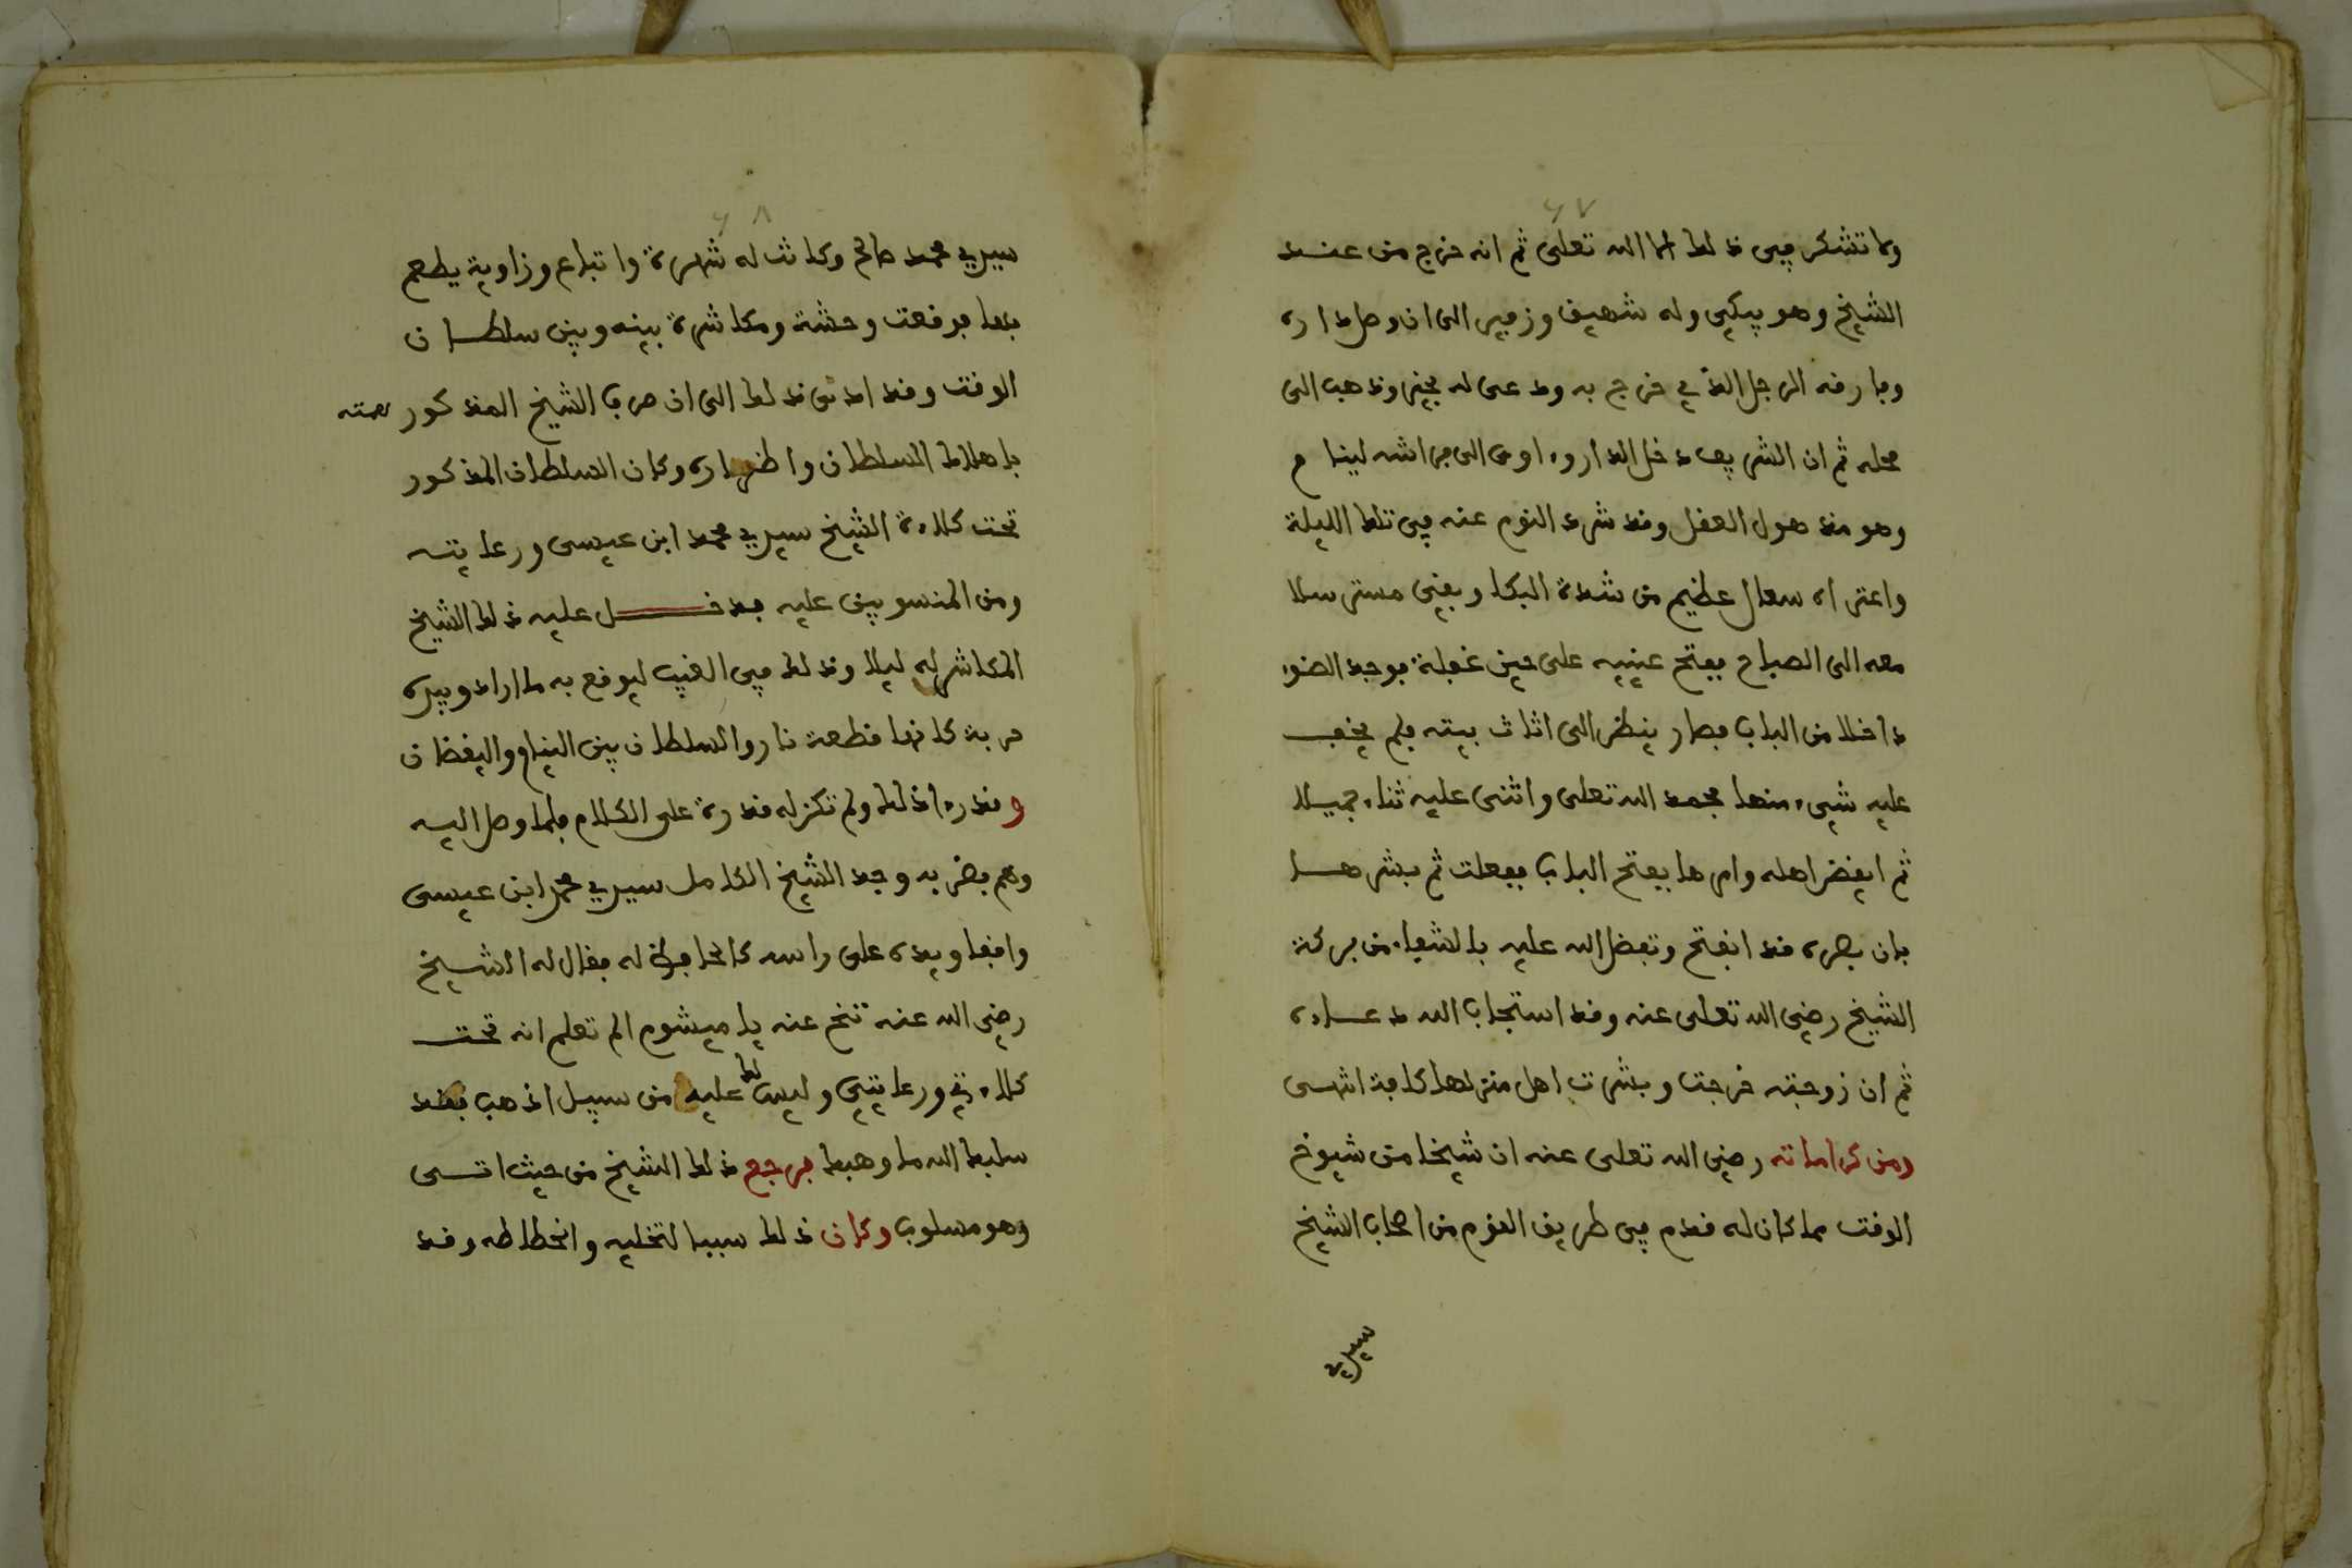 ٤٧
ولا تشكر في ذلك الا الله تعلى ثم انه خرج من عند
الشيخ وهو يبكي وله شهيق وزفير الى ان وصل داره
وفارقه الرجل الذي خرج به ودعى له بخير وذهب الى
محله ثم ان الشريف دخل الدار واوى الى فراشه لينام
وهو مذهول العقل وقد شرد النوم عنه في تلك الليلة
واعتراه سعال عظيم من شدة البكا وبقي مسترسلا
معه الى الصباح ففتح عينيه على حين غفلة فوجد الضوء
داخلا من الباب فصار ينظر الى اثاث بيته فلم يخف
عليه شيء منها فحمد الله تعلى واثنى عليه ثناء جميلا
ثم ايقض اهله وامرها بفتح الباب ففعلت ثم بشرها
بان بصره قد انفتح وتفضل الله عليه بالشفاء من بركة
الشيخ رضي الله تعلى عنه وقد استجاب الله دعاءه
ثم ان زوجته خرجت وبشرت اهل منزلها كافة انتهى
ومن كراماته رضي الله تعلى عنه ان شيخا من شيوخ
الوقت مما كان له قدم في طريق القوم من اصحاب الشيخ
سيدي
٤٨
سيدي محمد صالح وكانت له شهرة واتباع وزاوية يطعم
بها فوقعت وحشة ومكاشرة بينه وبين سلطان
الوقت وقد ادى ذلك الى ان صرف الشيخ المذكور همته
باهلاك السلطان واضراره وكان السلطان المذكور
تحت كلاءة الشيخ سيدي محمد ابن عيسى ورعايته
ومن المنسوبين عليه فدخل عليه ذلك الشيخ
المكاشر له ليلا وذلك في الغيب ليوقع به ما اراد وبيده
حربة كانها قطعة نار والسلطان بين النيام واليقظان
وقد راء ذلك ولم تكن له قدرة على الكلام فلما وصل اليه
وهم بضربه وجد الشيخ الكامل سيدي محمد ابن عيسى
واقفا ويده على راسه كالحافظ له فقال له الشيخ
رضي الله عنه تنح عنه يا ميشوم الم تعلم انه تحت
كلاءتي ورعايتي وليس لك عليه من سبيل اذهب فقد
سلبك الله ما وهبك فرجع ذلك الشيخ من حيث اتى
وهو مسلوب وكان ذلك سببا لتخليه وانحطاطه وقد